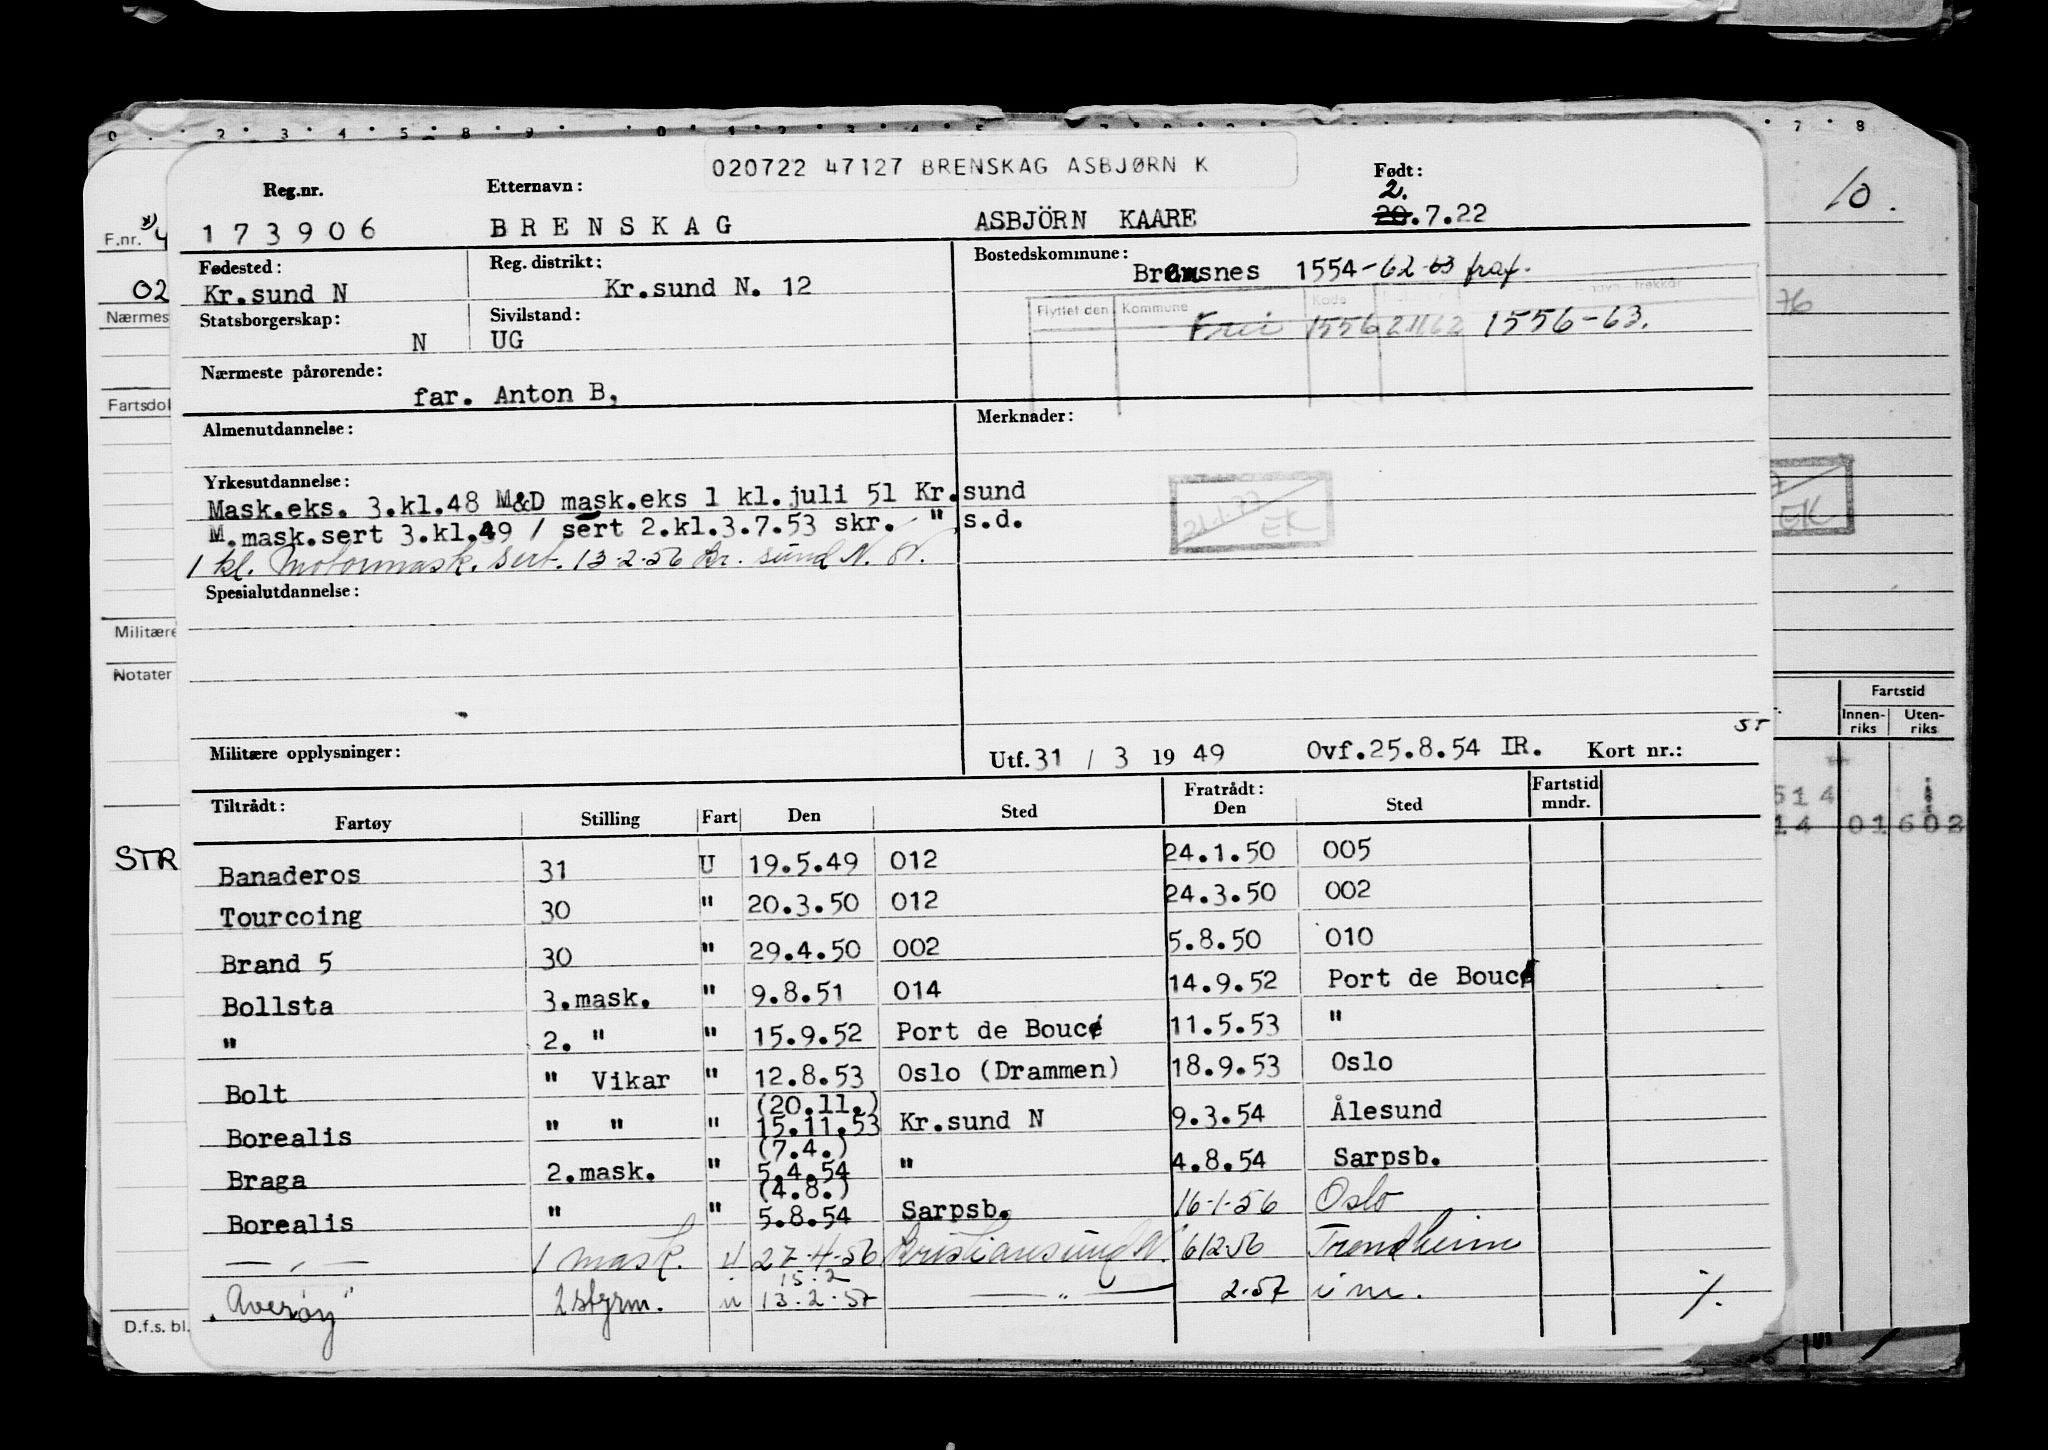 020722 47127 BRENSKAG ASBJØRN K
Reg.nr. Etternavn: Født:
2.
173906 BRENSKAG ASBJÖRN KAARE 20.7.22
10.
F.nr.
Fødested: Reg. distrikt: Bostedskommune:
02 Kr.sund N Kr.sund N. 12 Bremsnes 1554-62-63 fraf.
Nærmes
Statsborgerskap: Sivilstand: Flyttet den Kommune Kode
N UG Frei 1556 21162 1556-63.
76
Nærmeste pårørende:
far. Anton B,
Fartsdol
Almenutdannelse: Merknader:
Yrkesutdannelse:
Mask.eks. 3.kl.48 M&D mask.eks 1 kl.juli 51 Kr.sund
M.mask.sert 3.kl.49 / sert 2.kl.3.7.53 skr. " s.d.
1 kl. Motormask. sert. 13-2-56 Kr. sund N. N.
EK
EK
Spesialutdannelse:
Militære
Notater
Fartstid
Innen-riks Uten-riks
ST
Militære opplysninger: Utf. 31 / 3 19 49 Ovf.25.8.54 IR. Kort nr.:
514
14 01 602
Tiltrådt: Fratrådt: Fartstid mndr.
Fartøy Stilling Fart Den Sted Den Sted
STR
Banaderos 31 U 19.5.49 012 24.1.50 005
Tourcoing 30 " 20.3.50 012 24.3.50 002
Brand 5 30 " 29.4.50 002 5.8.50 010
Bollsta 3.mask. " 9.8.51 014 14.9.52 Port de Bouc
" 2. " " 15.9.52 Port de Bouc 11.5.53 "
Bolt " Vikar " 12.8.53 Oslo (Drammen) 18.9.53 Oslo
(20.11.)
Borealis " " " 15.11.53 Kr.sund N 9.3.54 Ålesund
(7.4.)
Braga 2.mask. " 5.4.54 " 4.8.54 Sarpsb.
(4.8.)
Borealis " " 5.8.54 Sarpsb. 16-1-56 Oslo
— " — 1 mask. u 27-4-56 Kristiansund N. 61256 Trondheim
15.2
"Averøy" 2 styrm. u 13.2.57 — " — 2.57 i m. ./.
D.f.s. bl.